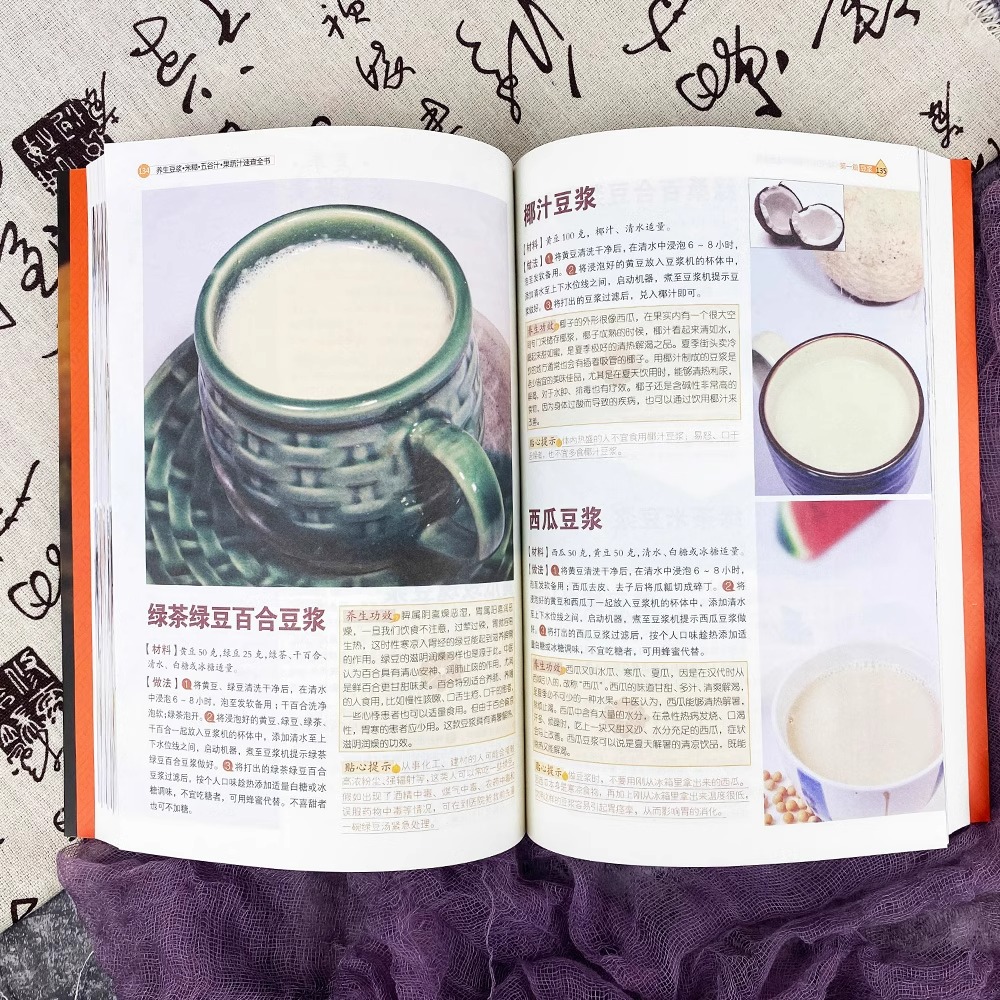 134 养生豆浆·米糊·五谷汁·果蔬汁速查全书
绿茶绿豆百合豆浆
【材料】黄豆50克,绿豆25克,绿茶、干百合、
清水、白糖或冰糖适量。
【做法】①将黄豆、绿豆清洗干净后，在清水
中浸泡6～8小时，泡至发软备用；干百合洗净
泡软;绿茶泡开。②将浸泡好的黄豆、绿豆、绿茶、
干百合一起放入豆浆机的杯体中，添加清水至上
下水位线之间，启动机器，煮至豆浆机提示绿茶
绿豆百合豆浆做好。③将打出的绿茶绿豆百合
豆浆过滤后，按个人口味趁热添加适量白糖或冰
糖调味，不宜吃糖者，可用蜂蜜代替。不喜甜者
也可不加糖。
养生功效 脾属阴喜燥恶湿，胃属阳喜润恶
燥，一旦我们饮食不注意，过荤过辣，胃就容易
生热，这时性寒凉入胃经的绿豆能起到滋养脾胃
的作用。绿豆的滋阴润燥同样也是源于此。中医
认为百合具有清心安神、润肺止咳的作用，尤其
是鲜百合更甘甜味美。百合特别适合养肺、养胃
的人食用，比如慢性咳嗽、口舌生疮、口干的患者，
一些心悸患者也可以适量食用。但由于百合偏凉
性，胃寒的患者应少用。这款豆浆具有清暑解热、
滋阴润燥的功效。
贴心提示 从事化工、建材的人可能会接触
高浓粉尘、强辐射等，这类人可以常吃一些绿豆。
假如出现了酒精中毒、煤气中毒、农药中毒或
误服药物中毒等情况，可在到医院抢救前先灌
一碗绿豆汤紧急处理。
第一篇 豆浆 135
椰汁豆浆
【材料】黄豆100克，椰汁、清水适量。
【做法】①将黄豆清洗干净后，在清水中浸泡6～8小时，
泡至发软备用。②将浸泡好的黄豆放入豆浆机的杯体中，
添加清水至上下水位线之间，启动机器，煮至豆浆机提示豆
浆做好。③将打出的豆浆过滤后，兑入椰汁即可。
养生功效 椰子的外形很像西瓜，在果实内有一个很大空
间专门来储存椰浆，椰子成熟的时候，椰汁看起来清如水，
喝起来甜如蜜，是夏季极好的清热解渴之品。夏季街头卖冷
饮的地方通常也会有插着吸管的椰子。用椰汁制成的豆浆是
老少皆宜的美味佳品，尤其是在夏天饮用时，能够清热利尿、
解渴，对于水肿、排毒也有疗效。椰子还是含碱性非常高的
食物，因为身体过酸而导致的疾病，也可以通过饮用椰汁来
改善。
贴心提示 体内热盛的人不宜食用椰汁豆浆；易怒、口干
舌燥者，也不宜多食椰汁豆浆。
西瓜豆浆
【材料】西瓜50克,黄豆50克,清水、白糖或冰糖适量。
【做法】①将黄豆清洗干净后，在清水中浸泡6～8小时，
泡至发软备用；西瓜去皮、去子后将瓜瓤切成碎丁。②将
浸泡好的黄豆和西瓜丁一起放入豆浆机的杯体中，添加清水
至上下水位线之间，启动机器，煮至豆浆机提示西瓜豆浆做
好。③将打出的西瓜豆浆过滤后，按个人口味趁热添加适
量白糖或冰糖调味，不宜吃糖者，可用蜂蜜代替。
养生功效 西瓜又叫水瓜、寒瓜、夏瓜，因是在汉代时从
西域传入的，故称“西瓜”。西瓜的味道甘甜、多汁、清爽解渴，
是夏季必不可少的一种水果。中医认为，西瓜能够清热解暑，
除烦止渴。西瓜中含有大量的水分，在急性热病发烧、口渴
汗多、烦躁时，吃上一块又甜又沙、水分充足的西瓜，症状
会马上改善。西瓜豆浆可以说是夏天解暑的清凉饮品，既能
清热又能解渴。
贴心提示 做豆浆时，不要用刚从冰箱里拿出来的西瓜。
西瓜本身是寒凉食物，再加上刚从冰箱里拿出来温度很低，
制成的豆浆容易引起胃痉挛，从而影响胃的消化。